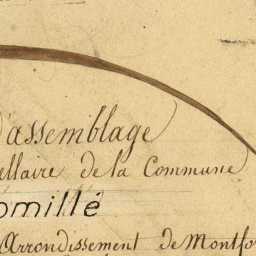 d'assemblage
ellaire de la Commune
omillé
Arrondissement de Montfo